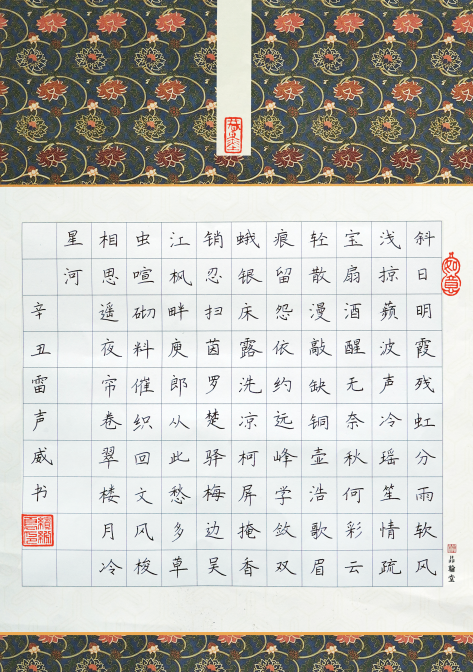 斜日明霞残虹分雨软风
浅掠蘋波声冷瑶笙情疏
宝扇酒醒无奈秋何彩云
轻散漫敲缺铜壶浩歌眉
痕留怨依约远峰学敛双
蛾银床露洗凉柯屏掩香
销忍扫茵罗楚驿梅边吴
江枫畔庾郎从此愁多草
虫喧砌料催织回文风梭
相思遥夜帘卷翠楼月冷
星河
辛丑雷声威书
如意
品翰堂